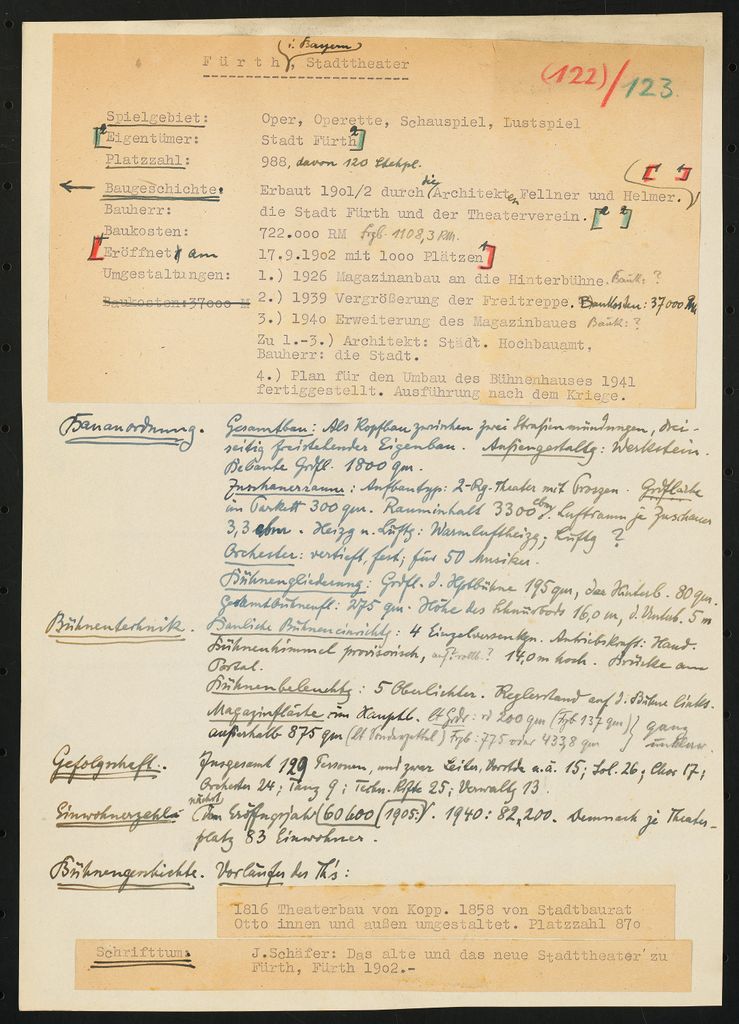 (i. Bayern)
Fürth, Stadttheater
(122)/123.
Spielgebiet: Oper, Operette, Schauspiel, Lustspiel
[² Eigentümer: Stadt Fürth ²]
Platzzahl: 988, davon 120 Stehpl.
← Baugeschichte: Erbaut 19o1/2 durch die Architekten Fellner und Helmer. ([ ]¹)
Bauherr: die Stadt Fürth und der Theaterverein. [² ²]
Baukosten: 722.ooo RM Frgb. 1108,3 RM.
[Eröffnet am 17.9.19o2 mit 1ooo Plätzen]¹
Umgestaltungen: 1.) 1926 Magazinanbau an die Hinterbühne. Bauk: ?
Baukosten: 37ooo M 2.) 1939 Vergrößerung der Freitreppe. Baukosten: 37000 RM
3.) 194o Erweiterung des Magazinbaues Bauk: ?
Zu 1.-3.) Architekt: Städt. Hochbauamt,
Bauherr: die Stadt.
4.) Plan für den Umbau des Bühnenhauses 1941
fertiggestellt. Ausführung nach dem Kriege.
Bauanordnung. Gesamtbau: Als Kopfbau zwischen zwei Straßenmündungen, drei-
seitig freistehender Eigenbau. Außengestaltg: Werkstein.
Bebaute Grdfl. 1800 qm.
Zuschauerraum: Aufbautyp: 2-Rg-Theater mit Proszen. Grdfläche
im Parkett 300 qm. Rauminhalt 3300 cbm. Luftraum je Zuschauer
3,3 cbm. Heizg u. Lüftg: Warmluftheizg; Lüftg ?
Orchester: vertieft, fest; für 50 Musiker.
Bühnengliederung: Grdfl. d. Hptbühne 195 qm, der Hinterb. 80 qm.
Gesamtbühnenfl: 275 qm. Höhe des Schnürbods 16,0 m, d. Unterb. 5 m
Bühnentechnik. Bauliche Bühneneinrichtg: 4 Einzelversenkgn. Antriebskraft: Hand.
Bühnenhimmel provisorisch, 14,0 m hoch. Brücke am
Portal.
Bühnenbeleuchtg: 5 Oberlichter. Reglerstand auf d. Bühne links.
Magazinfläche im Haupth. lt Grdr: rd 200 qm (Frgb 137 qm) } ganz
außerhalb 875 qm (lt Sonderzettel) Frgb: 775 oder 433,8 qm } unklar.
Gefolgschaft. Insgesamt 129 Personen, und zwar Leiter, Vorstde u.ä. 15; Sol. 26; Chor 17;
Orchester 24; Tanz 9; Techn. Kfte 25; Verwaltg 13.
Einwohnerzahl: nächst dem Eröffngsjahr 60600 (1905). 1940: 82,200. Demnach je Theater-
platz 83 Einwohner.
Bühnengeschichte. Vorläufer des Th's:
1816 Theaterbau von Kopp. 1858 von Stadtbaurat
Otto innen und außen umgestaltet. Platzzahl 87o
Schrifttum: J.Schäfer: Das alte und das neue Stadttheater zu
Fürth, Fürth 19o2.-